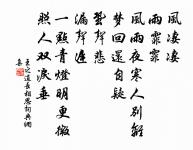 風淒淒
雨霏霏
風雨夜寒人別離
夢回還自疑
蛩聲悲
漏聲遲
一點青燈明更微
照人雙淚垂
王之道長相思詞典網